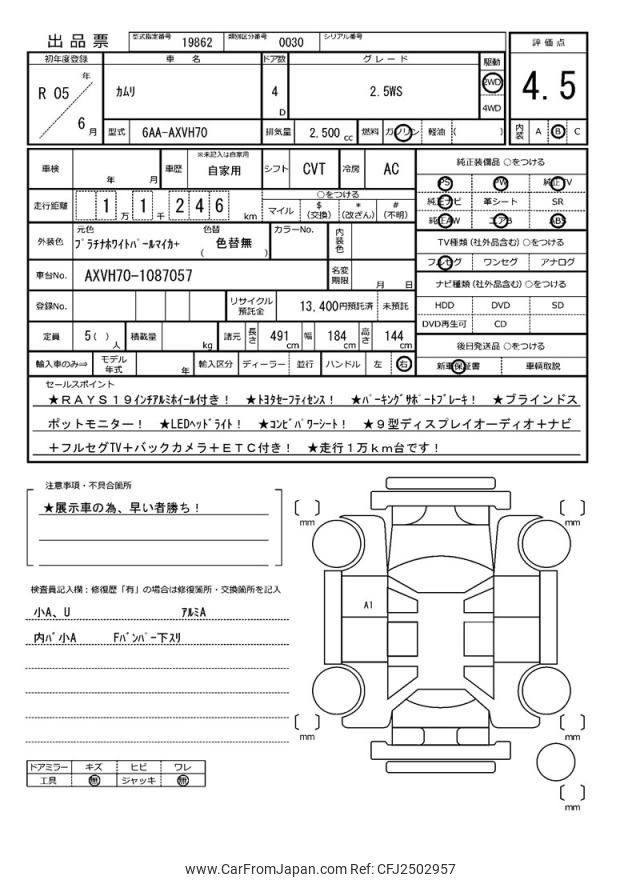 出品票
型式指定番号 19862 類別区分番号 0030 シリアル番号
評価点
初年度登録 車名 ドア数 グレード 駆動
R 05 年 6 月 カムリ 4 D 2.5WS 2WD 4WD
4.5
型式 6AA-AXVH70 排気量 2,500 cc 燃料 ガソリン 軽油 ( )
内装 A B C
車検 年 月 車歴 ※未記入は自家用 自家用 シフト CVT 冷房 AC
純正装備品 ○をつける
PS PW 純正TV
走行距離 1 万 1 千 2 4 6 km
○をつける
マイル $ (交換) * (改ざん) # (不明)
純正ナビ 革シート SR
純正AW エアB ABS
外装色 元色 プラチナホワイトパールマイカ+ 色替 ( 色替無 ) カラーNo. 内装色
TV種類 (社外品含む) ○をつける
フルセグ ワンセグ アナログ
車台No. AXVH70-1087057 名変期限 月 日
ナビ種類 (社外品含む) ○をつける
HDD DVD SD
DVD再生可 CD
登録No. リサイクル預託金 13,400円預託済 未預託
定員 5( ) 人 積載量 kg 諸元 長さ 491 cm 幅 184 cm 高さ 144 cm
後日発送品 ○をつける
新車保証書 車輌取説
輸入車のみ⇒ モデル年式 年 輸入区分 ディーラー 並行 ハンドル 左 右
セールスポイント
★RAYS19インチアルミホイール付き! ★トヨタセーフティセンス! ★パーキングサポートブレーキ! ★ブラインドス
ポットモニター! ★LEDヘッドライト! ★コンビパワーシート! ★9型ディスプレイオーディオ+ナビ
+フルセグTV+バックカメラ+ETC付き! ★走行1万km台です!
注意事項・不具合箇所
★展示車の為、早い者勝ち!
検査員記入欄:修復歴「有」の場合は修復箇所・交換箇所を記入
小A、U アルミA
内バ小A Fバンパー下スリ
mm
mm
A1
mm
mm
mm
ドアミラー キズ ヒビ ワレ
工具 無 ジャッキ 無
www.CarFromJapan.com Ref: CFJ2502957